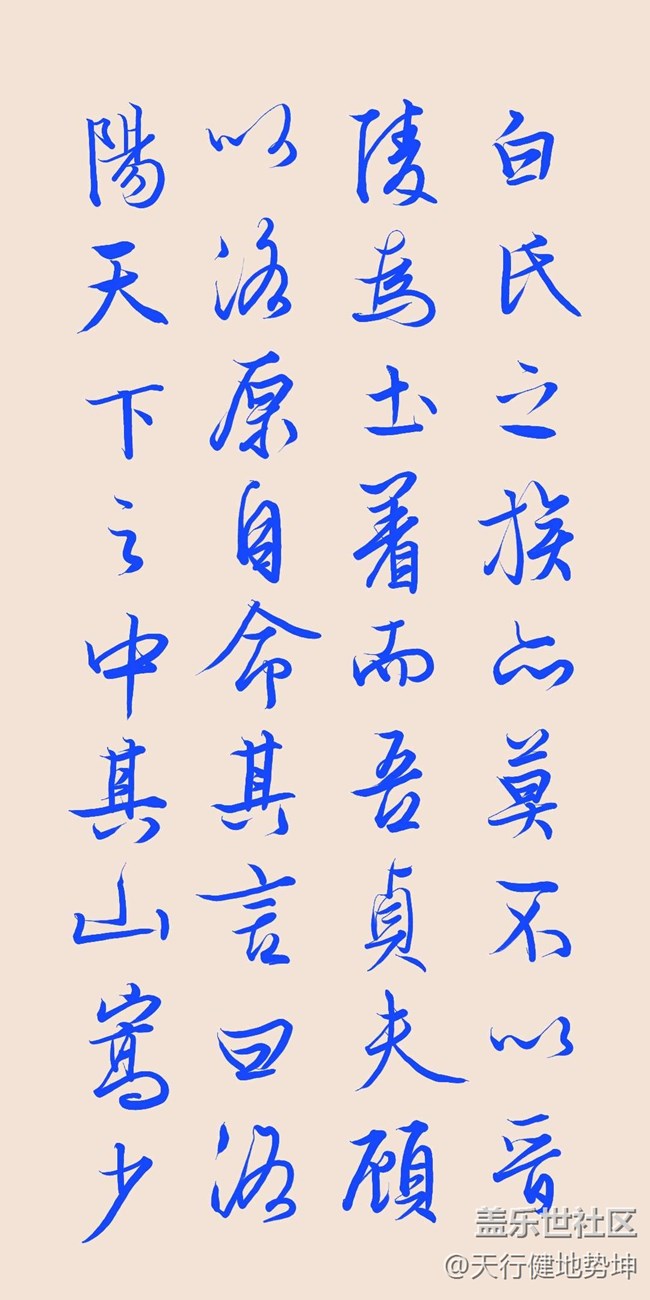 白氏之族亦莫不以晋
陵為土着而吾貞夫顧
以洛原自命其言曰洛
陽天下之中其山嵩少
盖乐世社区
@天行健地势坤